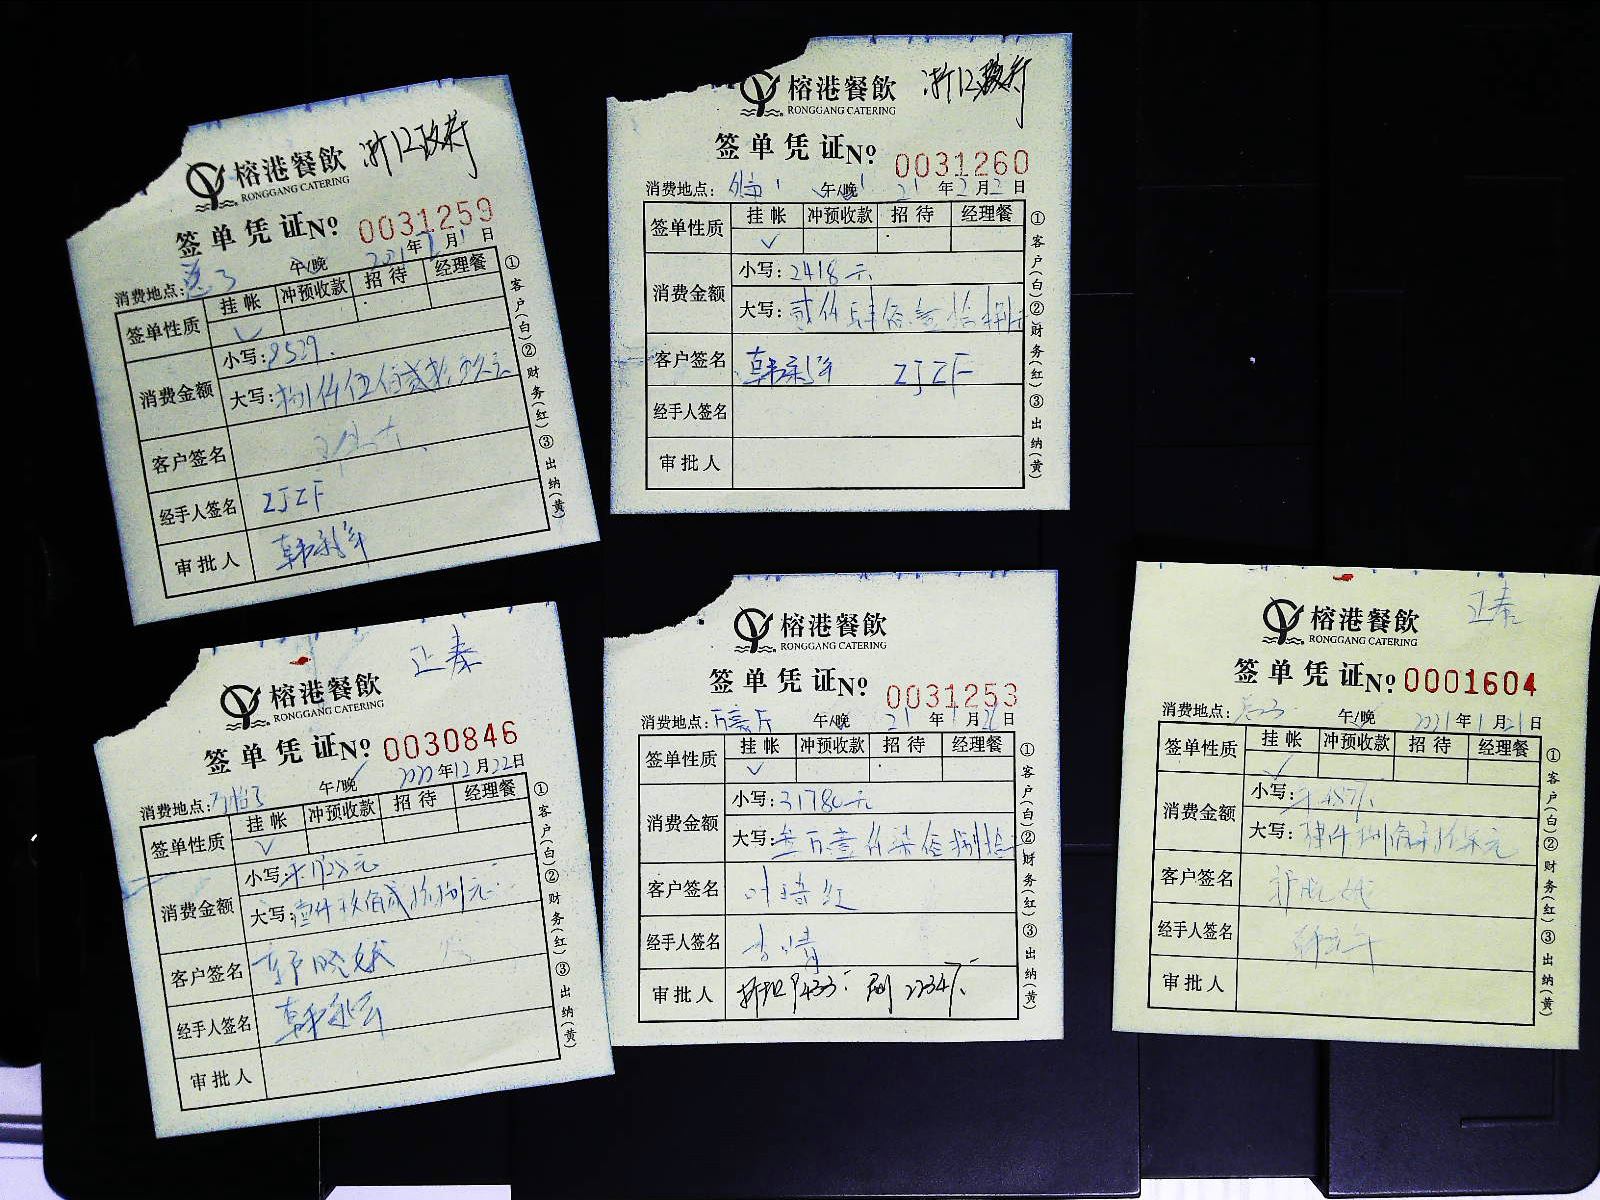 浙江政府
榕港餐飲
RONGGANG CATERING
签单凭证No 0031259
2021年2月1日
消费地点: 午/晚
签单性质 挂帐 冲预收款 招待 经理餐
✓
消费金额 小写: 8529.
大写: 捌仟伍佰贰拾玖元
客户签名
经手人签名 ZJZF
审批人
①客户(白)②财务(红)③出纳(黄)
浙江政府
榕港餐飲
RONGGANG CATERING
签单凭证No 0031260
消费地点: 午/晚 21年2月2日
签单性质 挂帐 冲预收款 招待 经理餐
✓
消费金额 小写: 2418元
大写: 贰仟肆佰壹拾捌元
客户签名 ZJZF
经手人签名
审批人
①客户(白)②财务(红)③出纳(黄)
正泰
榕港餐飲
RONGGANG CATERING
签单凭证No 0030846
消费地点: 午/晚 2020年12月22日
签单性质 挂帐 冲预收款 招待 经理餐
✓
消费金额 小写: 1928元
大写: 壹仟玖佰贰拾捌元
客户签名 郭晓娥
经手人签名
审批人
①客户(白)②财务(红)③出纳(黄)
榕港餐飲
RONGGANG CATERING
签单凭证No 0031253
消费地点: 午/晚 21年1月21日
签单性质 挂帐 冲预收款 招待 经理餐
✓
消费金额 小写: 31780元
大写: 叁万壹仟柒佰捌拾元
客户签名 叶琦红
经手人签名
审批人
①客户(白)②财务(红)③出纳(黄)
正泰
榕港餐飲
RONGGANG CATERING
签单凭证No 0001604
消费地点: 午/晚 2021年1月21日
签单性质 挂帐 冲预收款 招待 经理餐
✓
消费金额 小写:
大写:
客户签名
经手人签名
审批人
①客户(白)②财务(红)③出纳(黄)